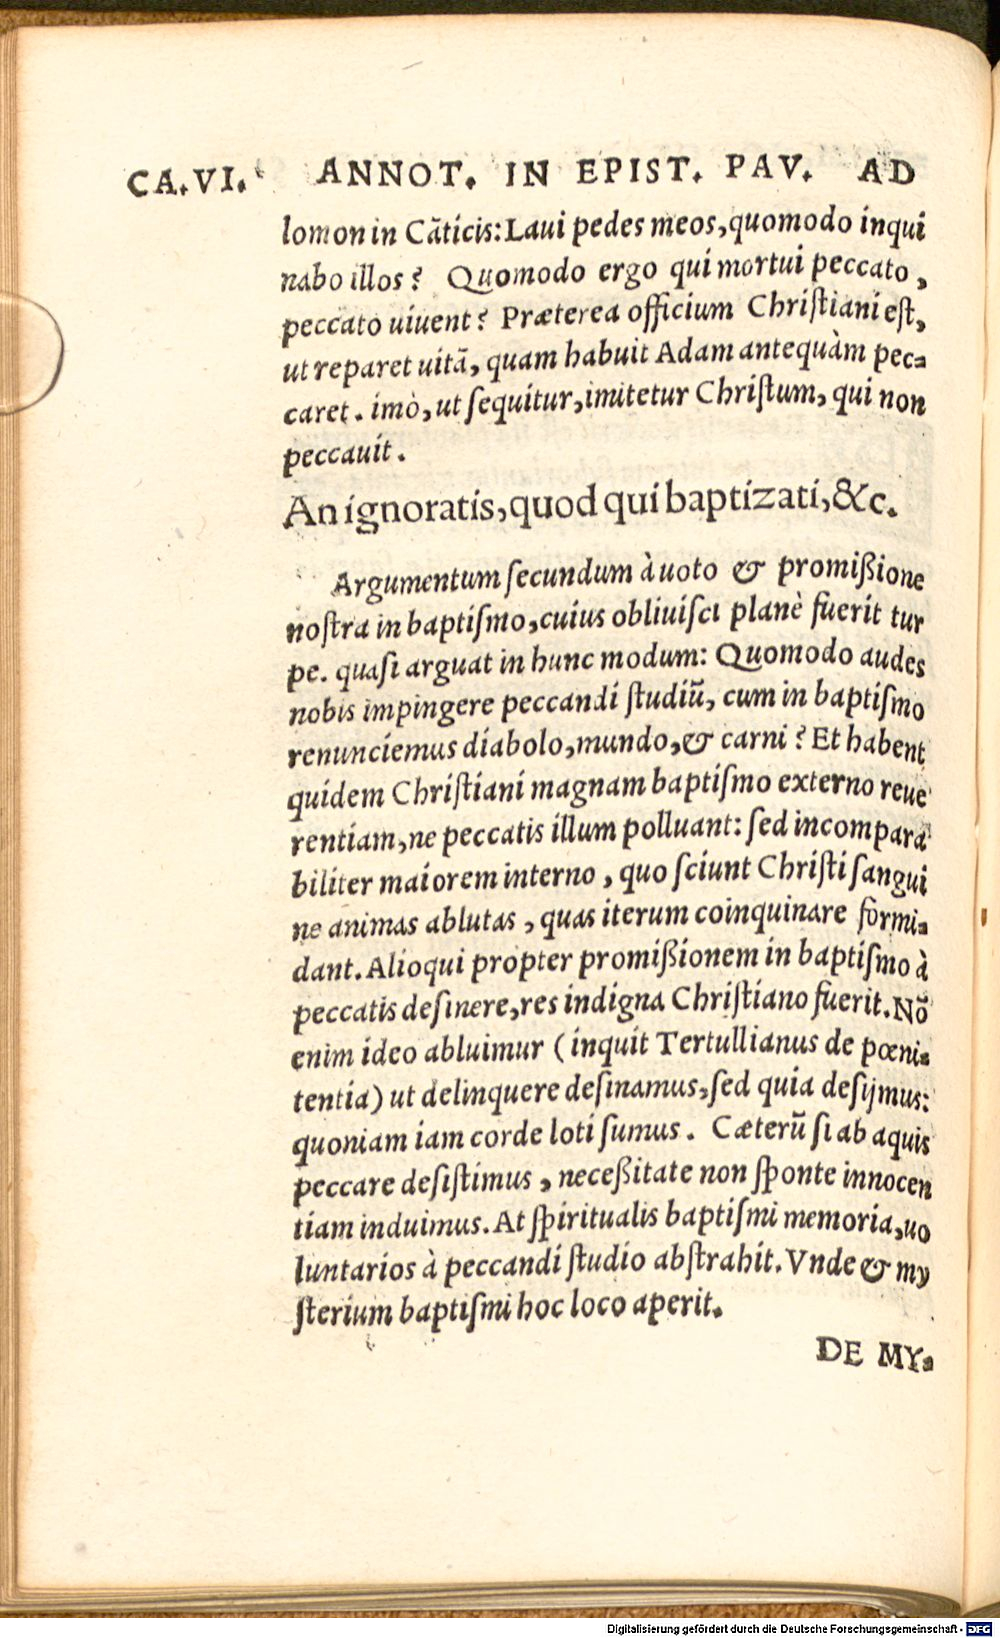 CA.VI. ANNOT. IN EPIST. PAV. AD
lomon in Cãticis: Laui pedes meos, quomodo inqui
nabo illos? Quomodo ergo qui mortui peccato,
peccato uiuent? Præterea officium Chriſtiani eſt,
ut reparet uitã, quam habuit Adam antequàm pec⸗
caret. imò, ut ſequitur, imitetur Chriſtum, qui non
peccauit.
An ignoratis, quod qui baptizati, &c.
Argumentum ſecundum à uoto & promißione
noſtra in baptiſmo, cuius obliuiſci planè fuerit tur
pe. quaſi arguat in hunc modum: Quomodo audes
nobis impingere peccandi ſtudiũ, cum in baptiſmo
renunciemus diabolo, mundo, & carni? Et habent
quidem Chriſtiani magnam baptiſmo externo reue
rentiam, ne peccatis illum polluant: ſed incompara
biliter maiorem interno, quo ſciunt Chriſti ſangui
ne animas ablutas, quas iterum coinquinare formi⸗
dant. Alioqui propter promißionem in baptiſmo à
peccatis deſinere, res indigna Chriſtiano fuerit. Nõ
enim ideo abluimur (inquit Tertullianus de pœni⸗
tentia) ut delinquere deſinamus, ſed quia deſijmus:
quoniam iam corde loti ſumus. Cæterũ ſi ab aquis
peccare deſiſtimus, neceßitate non ſponte innocen
tiam induimus. At ſpiritualis baptiſmi memoria, uo
luntarios à peccandi ſtudio abſtrahit. Vnde & my
ſterium baptiſmi hoc loco aperit.
DE MY⸗
Digitalisierung gefördert durch die Deutsche Forschungsgemeinschaft - DFG